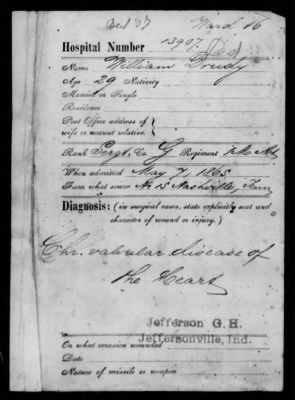 Ward 16
Hospital Number 13907.
Name William
Age 29 Nativity
Married or Single
Residence
Post Office address of
wife or nearest relative.
Rank Sergt. Co G Regiment
When admitted May 7, 1865
From what source No 15 Nashville, Tenn
Diagnosis: (in surgical cases, state explicitly seat and
character of wound or injury.)
Chr. valvular disease of
the Heart
Jefferson G. H.
Jeffersonville, Ind.
On what occasion wounded
Date
Nature of missile or weapon